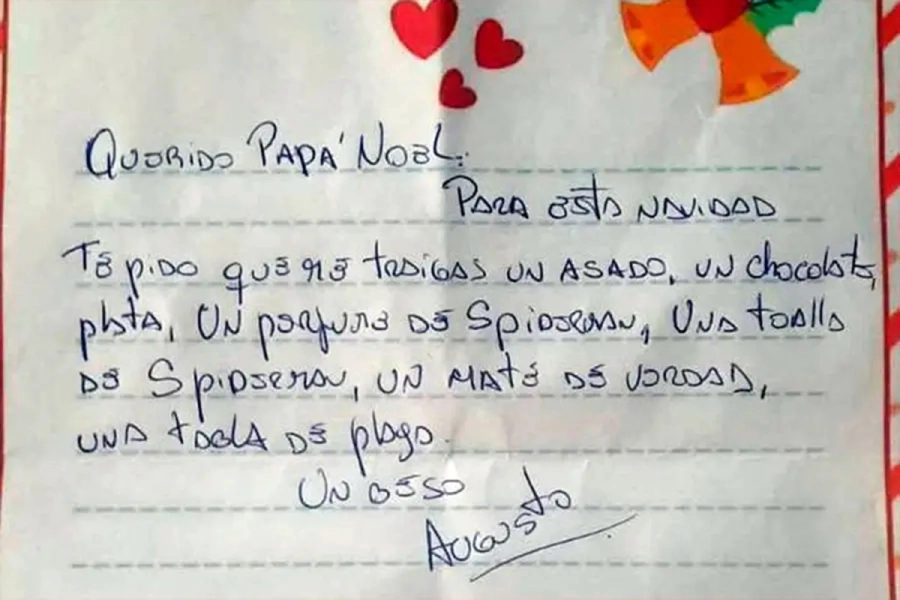 Querido Papá Noel:
Para esta navidad
Te pido que me traigas un asado, un chocolate,
plata, un perfume de Spiderman, una toalla
de Spiderman, un mate de verdad,
una tabla de playa.
Un beso
Augusto